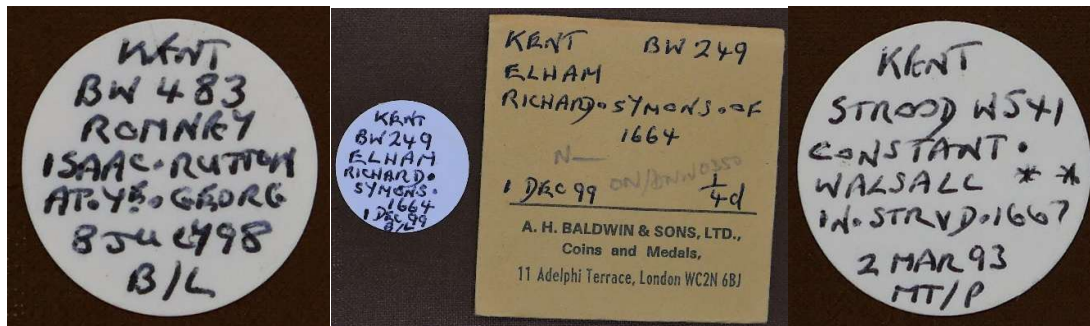 KENT
BW 483
ROMNEY
ISAAC. RUTTON
AT. YE. GEORG
8 JULY 98
B/L
KENT
BW 249
ELHAM
RICHARD.
SYMONS.
1664
1 DEC 99
B/L
KENT BW 249
ELHAM
RICHARD. SYMONS. OF
1664
N—
ON/ANW0350
1 DEC 99 1/4d
A. H. BALDWIN & SONS, LTD.,
Coins and Medals,
11 Adelphi Terrace, London WC2N 6BJ
KENT
STROOD W541
CONSTANT.
WALSALL * *
IN. STRVD. 1667
2 MAR 93
MT/P